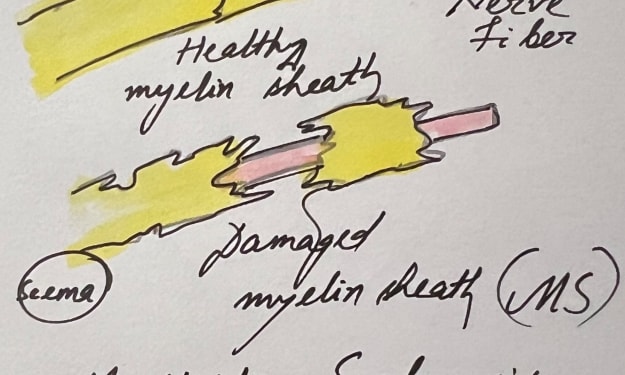 Nerve
Fiber
Healthy
myelin sheath
Damaged
myelin sheath (MS)
Seema